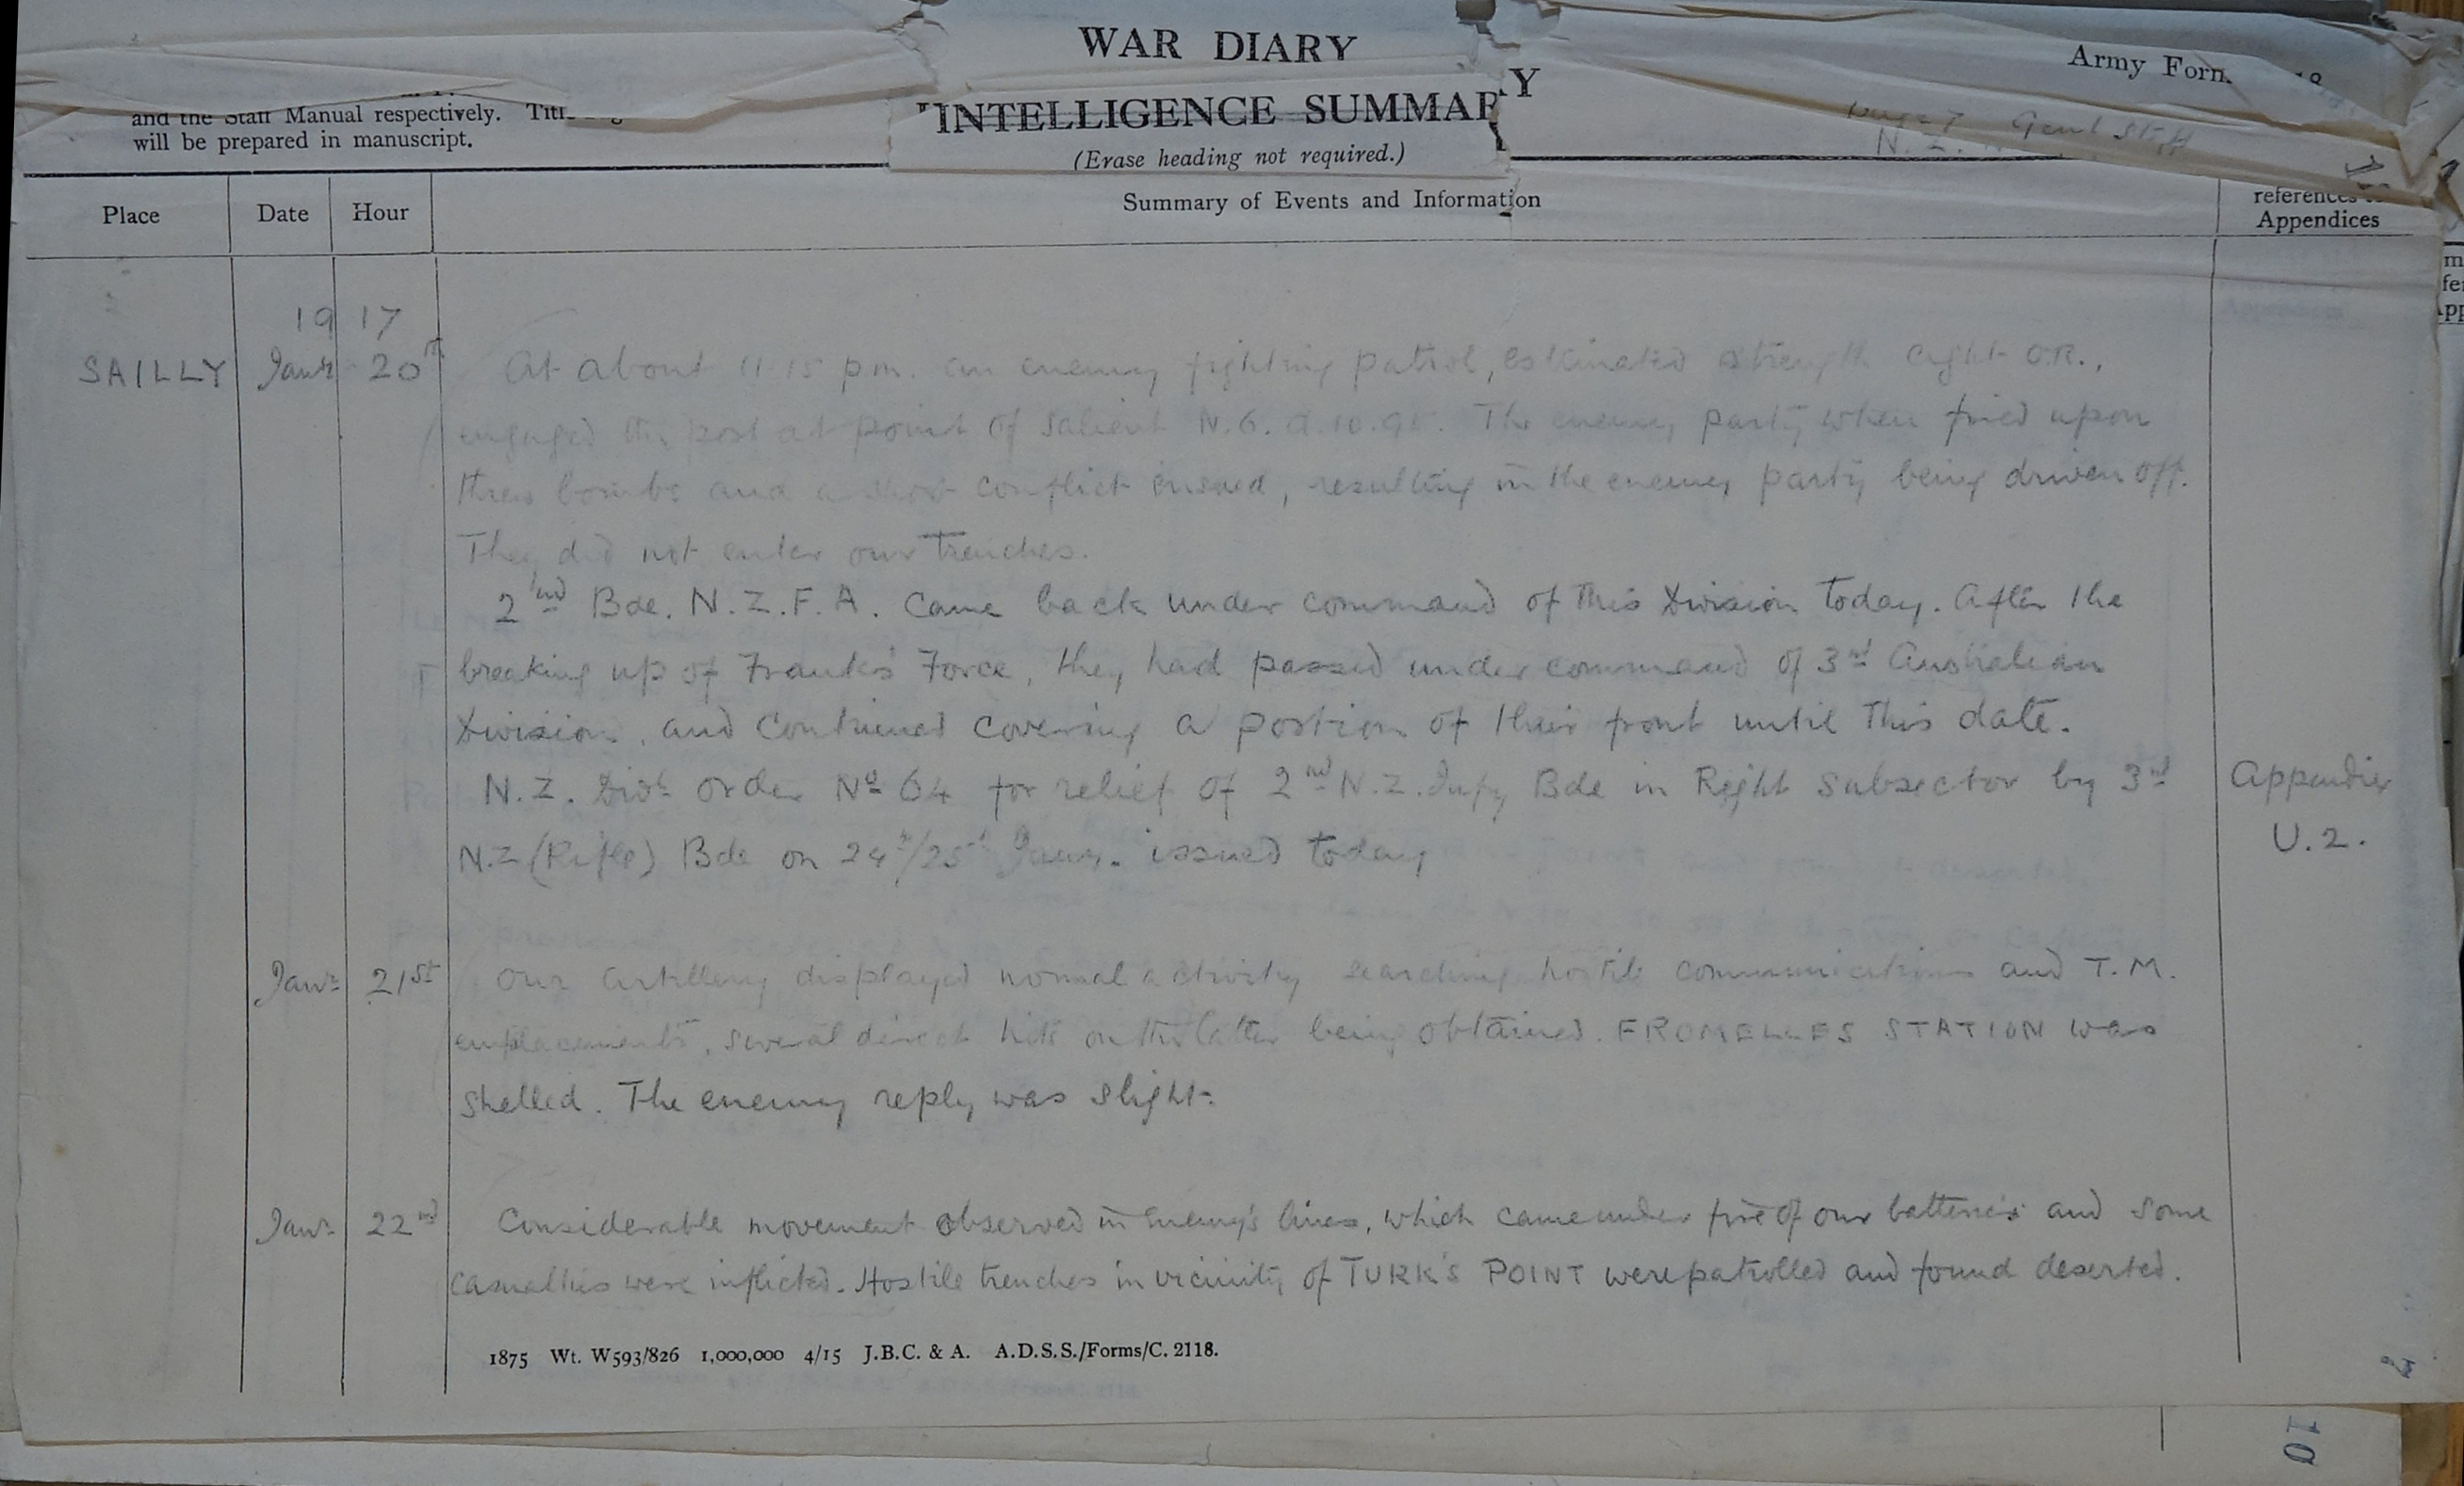 WAR DIARY
Army Form
INTELLIGENCE SUMMARY
and the Staff Manual respectively.
will be prepared in manuscript.
(Erase heading not required.)
Page 7 Genl Staff
N. Z.
Place
Date
Hour
Summary of Events and Information
references to
Appendices
1917
SAILLY Jany 20th At about 11.15 p.m. an enemy fighting patrol, estimated strength eight O.R.,
engaged the post at point of salient N.6. The enemy party when fired upon
threw bombs and a short conflict ensued, resulting in the enemy party being driven off.
They did not enter our trenches.
2nd Bde. N.Z.F.A. came back under command of this Division today. After the
breaking up of Franks' Force, they had passed under command of 3rd Australian
Division, and continued covering a portion of their front until this date.
N.Z. Divn. order No 64 for relief of 2nd N.Z. Infy Bde in Right Subsector by 3rd
Appendix
N.Z (Rifle) Bde on 24th/25th Jany. issued today
U.2.
Jany 21st Our artillery displayed normal activity searching hostile communications and T.M.
emplacements, several direct hits on the latter being obtained. FROMELLES STATION was
shelled. The enemy reply was slight.
Jany 22nd Considerable movement observed in Enemy's lines, which came under fire of our batteries and some
casualties were inflicted. Hostile trenches in vicinity of TURK'S POINT were patrolled and found deserted.
1875 Wt. W593/826 1,000,000 4/15 J.B.C. & A. A.D.S.S./Forms/C. 2118.
10